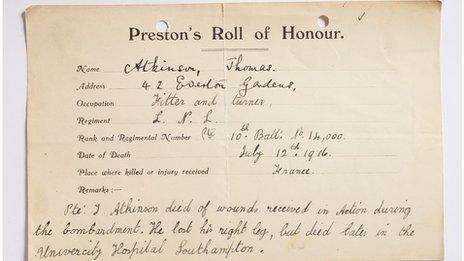 Preston's Roll of Honour.
Name Atkinson, Thomas.
Address 42 Everton Gardens,
Occupation Fitter and turner,
Regiment L. N. L.
Rank and Regimental Number Pte 10th Batt. No. 14,000.
Date of Death July 12th 1916.
Place where killed or injury received France.
Remarks:—
Pte: T. Atkinson died of wounds received in Action during
the bombardment. He lost his right leg, but died later in the
Univercity Hospital Southampton.